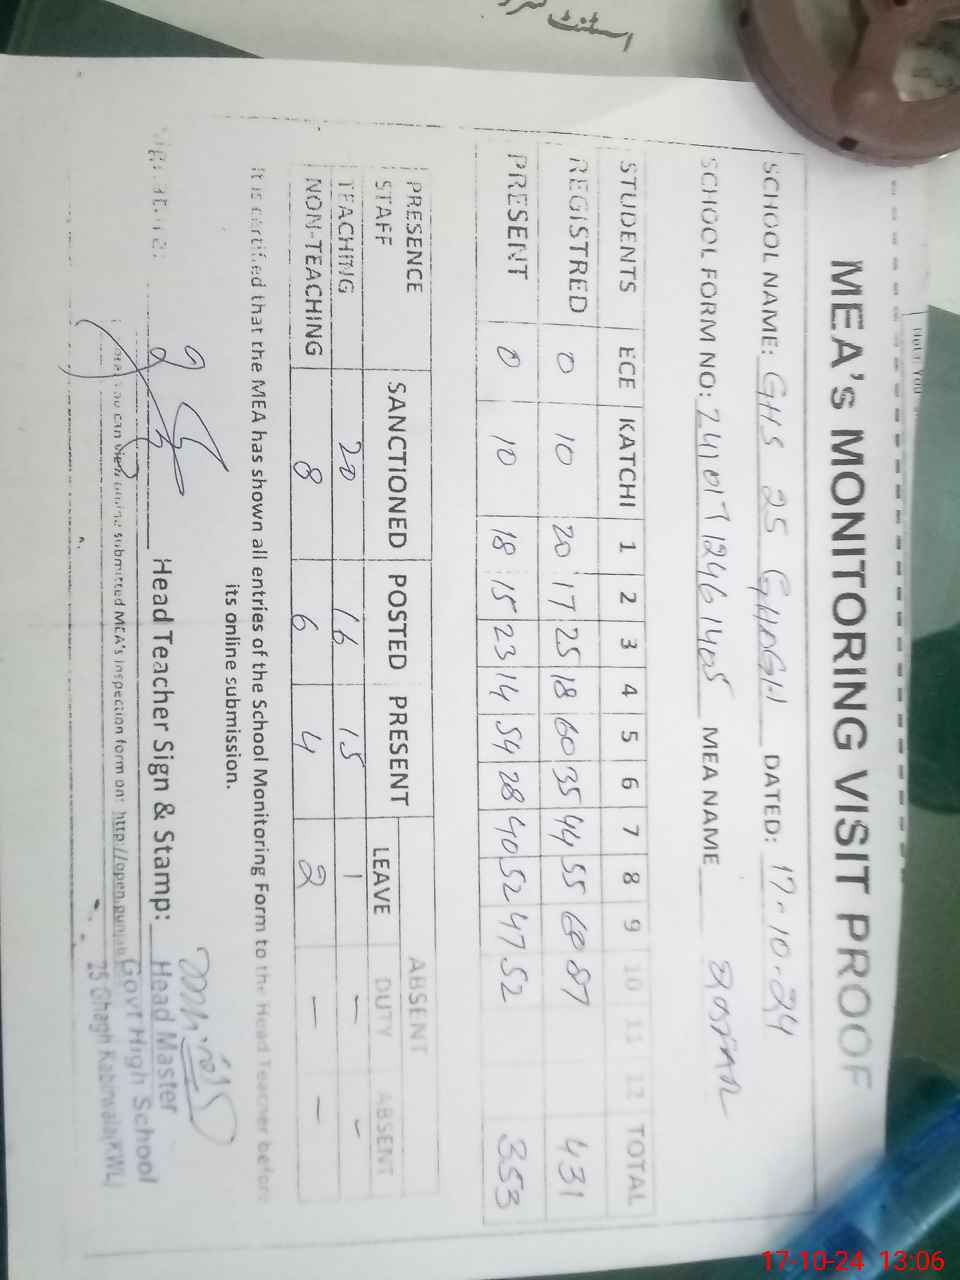 MEA's MONITORING VISIT PROOF
SCHOOL NAME: GHS 25 GHAGH DATED: 17-10-24
SCHOOL FORM NO: MEA NAME
STUDENTS ECE KATCHI 1 2 3 4 5 6 7 8 9 10 11 12 TOTAL
REGISTRED 0 10 20 17 25 18 60 35 44 55 60 87 431
PRESENT 0 10 18 15 23 14 54 28 40 52 47 52 353
PRESENCE SANCTIONED POSTED PRESENT ABSENT
STAFF LEAVE DUTY ABSENT
TEACHING 20 16 15 1 – –
NON-TEACHING 8 6 4 2 – –
It is certified that the MEA has shown all entries of the School Monitoring Form to the Head Teacher before
its online submission.
Head Teacher Sign & Stamp:
Head Master
Govt High School
25 Ghagh Kabirwala(KWL)
you can view online submitted MEA's inspection form on: http://open.punjab
17-10-24 13:06